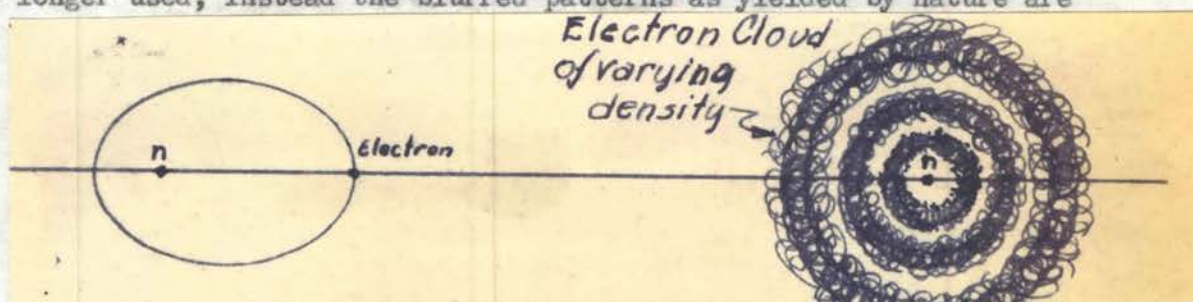 longer used, instead the blurred patterns as yielded by nature are
Electron Cloud
of varying
density
n
Electron
n